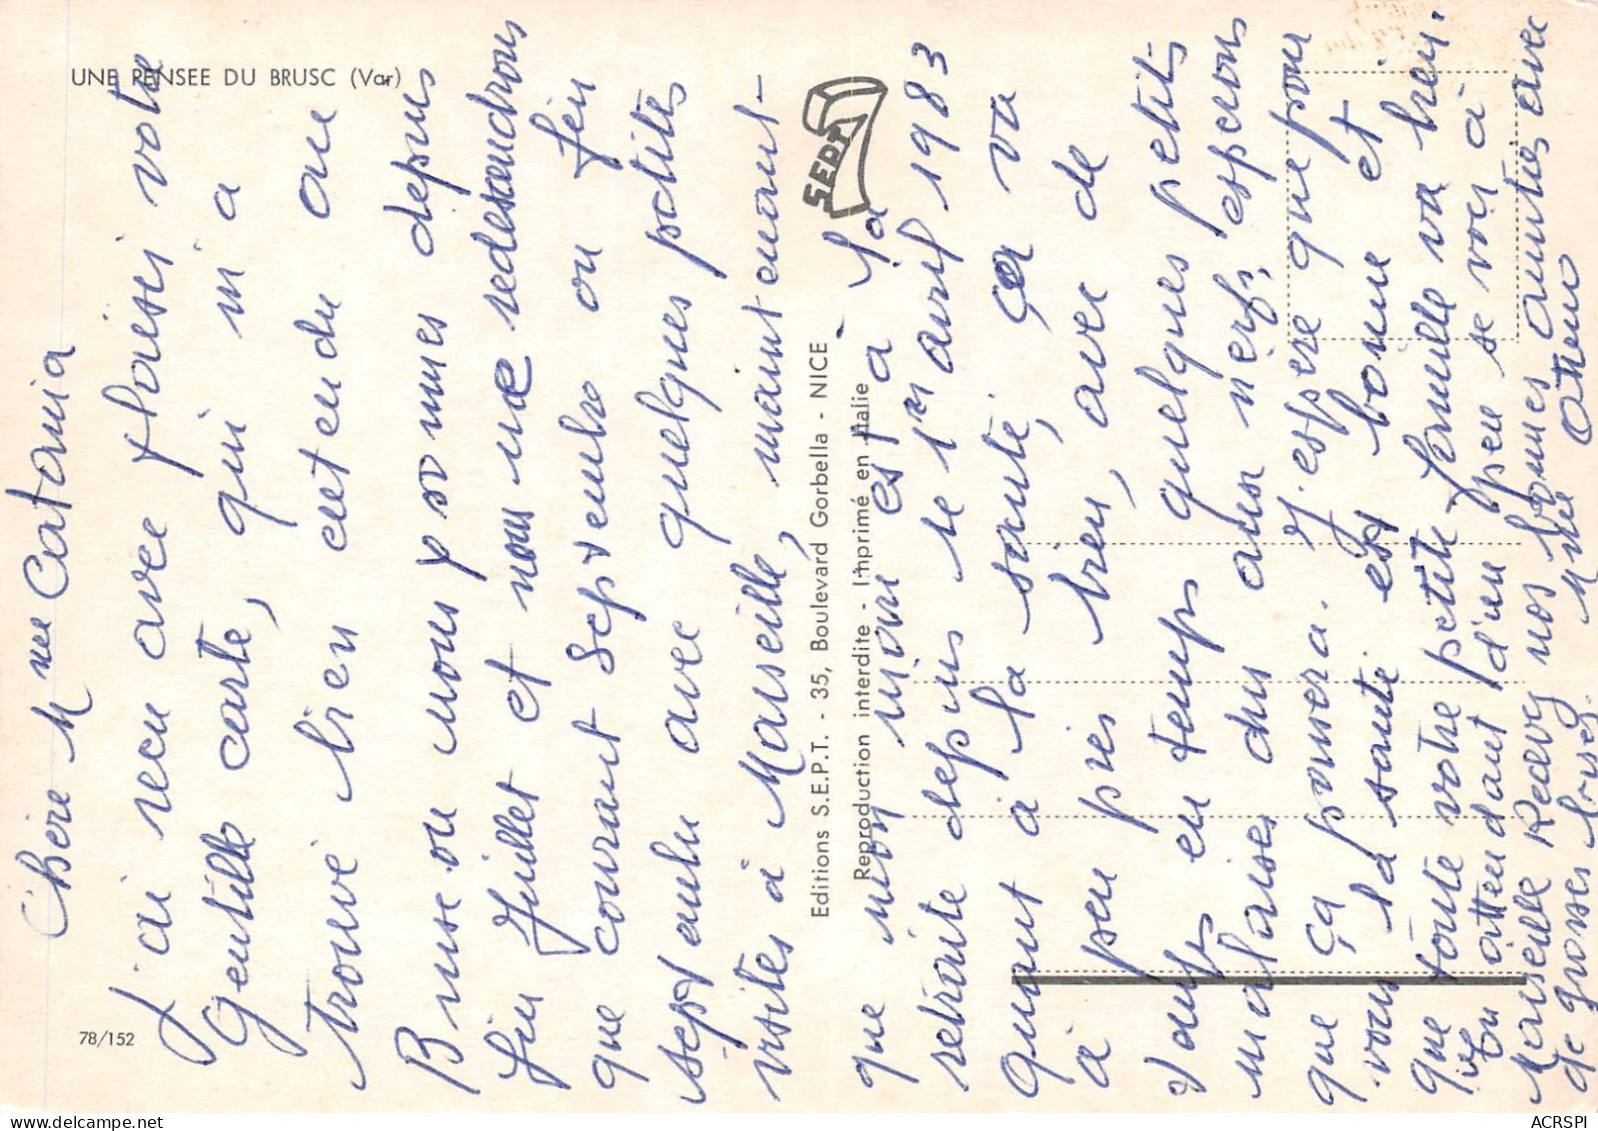 UNE PENSEE DU BRUSC (Var)
78/152
Editions S.E.P.T. - 35, Boulevard Gorbella - NICE
Reproduction interdite - Imprimé en Italie
SEPT
Chère Mme Catania
J'ai recu avec plaisir votre
Gentille carte, qui m'a
trouvé bien entendu au
Brusc ou nous y sommes depuis
fin Juillet et nous ne redescendrons
que courant Septembre ou fin
septembre avec quelques petites
visites à Marseille, maintenant
que mon mari est à la
retraite depuis le 1er avril 1983
Quant à la santé, ça va
à peu près bien, avec de
temps en temps quelques petits
malaises dus aux nerfs, esperons
que ça passera. J'espere que pour
vous la santé est bonne et
que toute votre petite famille va bien.
En attendant d'un peu se voir à
Marseille Recevez nos bonnes amitiés avec
de grosses bises. Mme
ACRSPI